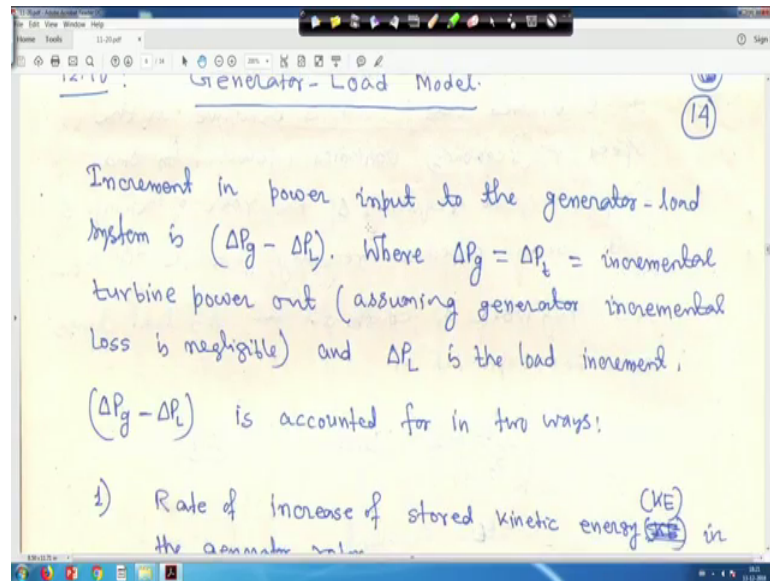 11-20.pdf - Adobe Acrobat Reader DC
File Edit View Window Help
Home Tools 11-20.pdf × Sign
Generator-Load Model.
14
Increment in power input to the generator-load
system is (ΔPg - ΔPL). Where ΔPg = ΔPt = incremental
turbine power out (assuming generator incremental
loss is negligible) and ΔPL is the load increment.
(ΔPg - ΔPL) is accounted for in two ways:
(KE)
1) Rate of increase of stored kinetic energy in
the generator rotor
8.50 x 11.71 in